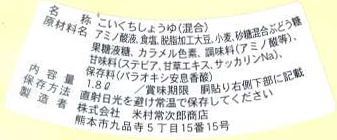 名　称　こいくちしょうゆ(混合)
原材料名　アミノ酸液、食塩、脱脂加工大豆、小麦、砂糖混合ぶどう糖
果糖液糖、カラメル色素、調味料(アミノ酸等)、
甘味料(ステビア、甘草エキス、サッカリンNa)、
保存料(パラオキシ安息香酸)
内容量　1.8ℓ　／賞味期限　胴貼り右側下部に記載
保存方法　直射日光を避け常温で保存してください
製造者　株式会社　米村常次郎商店
熊本市九品寺5丁目15番15号